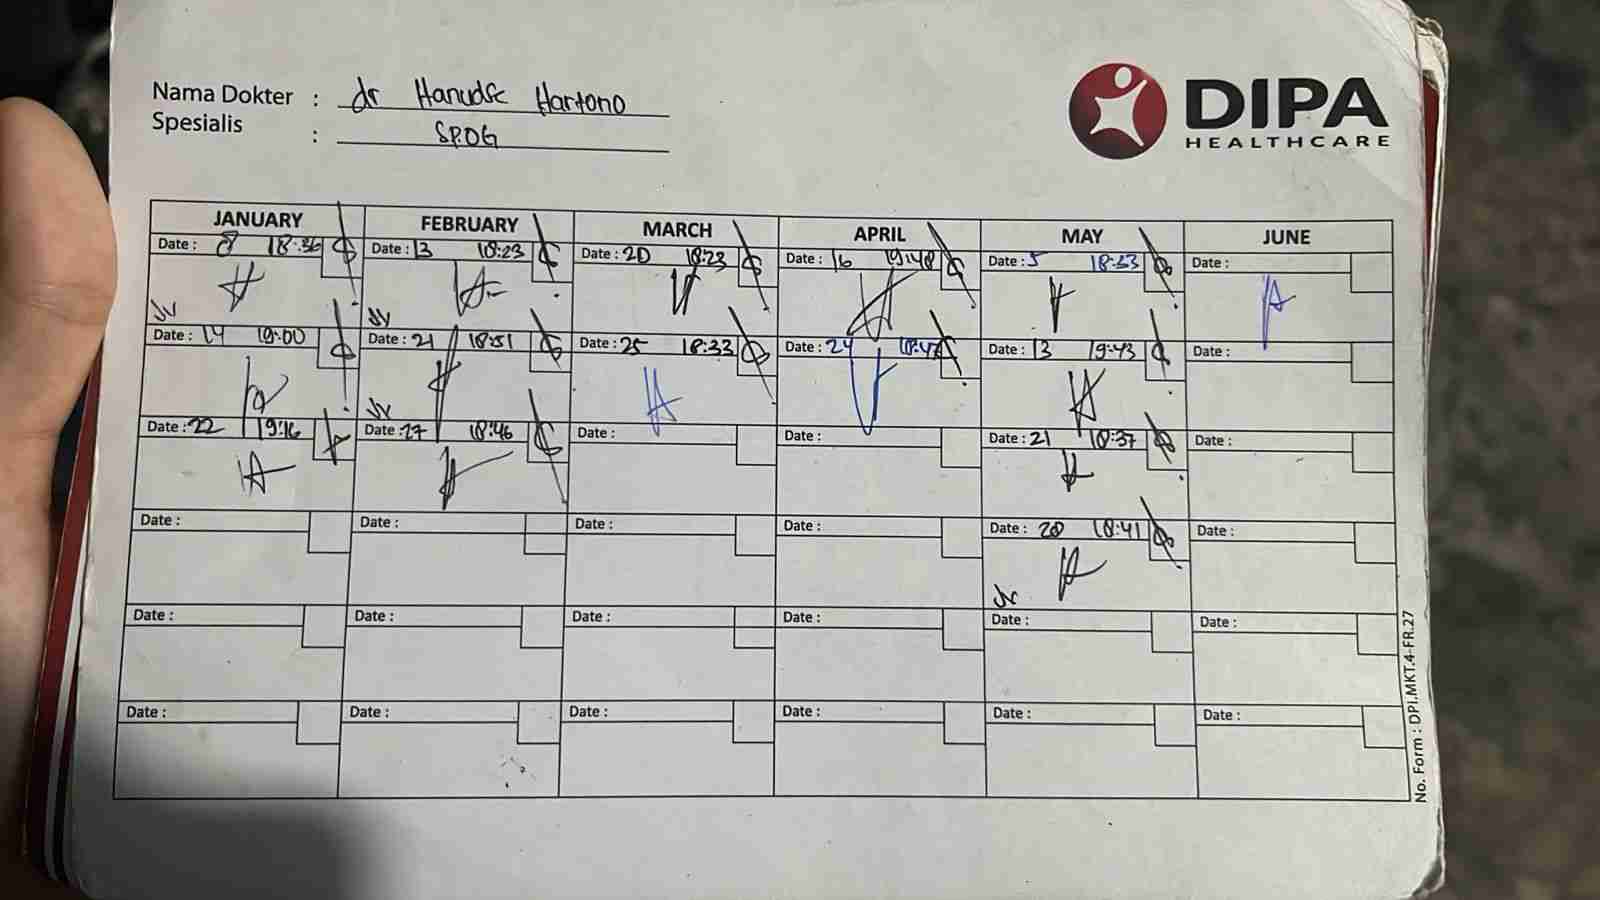 Nama Dokter : dr Hanudse Hartono
Spesialis : SP.OG
DIPA
HEALTHCARE
JANUARY FEBRUARY MARCH APRIL MAY JUNE
Date : 8 18:36 Date : 13 18:23 Date : 20 18:23 Date : 16 19:48 Date : 5 18:33 Date :
Jv Jv
Date : 14 19:00 Date : 21 18:51 Date : 25 18:33 Date : 24 18:47 Date : 13 19:43 Date :
Jv
Date : 22 19:16 Date : 27 18:46 Date : Date : Date : 21 18:37 Date :
Date : Date : Date : Date : Date : 28 18:41 Date :
Jv
Date : Date : Date : Date : Date : Date :
Date : Date : Date : Date : Date : Date :
No. Form : DPI.MKT.4-FR.27